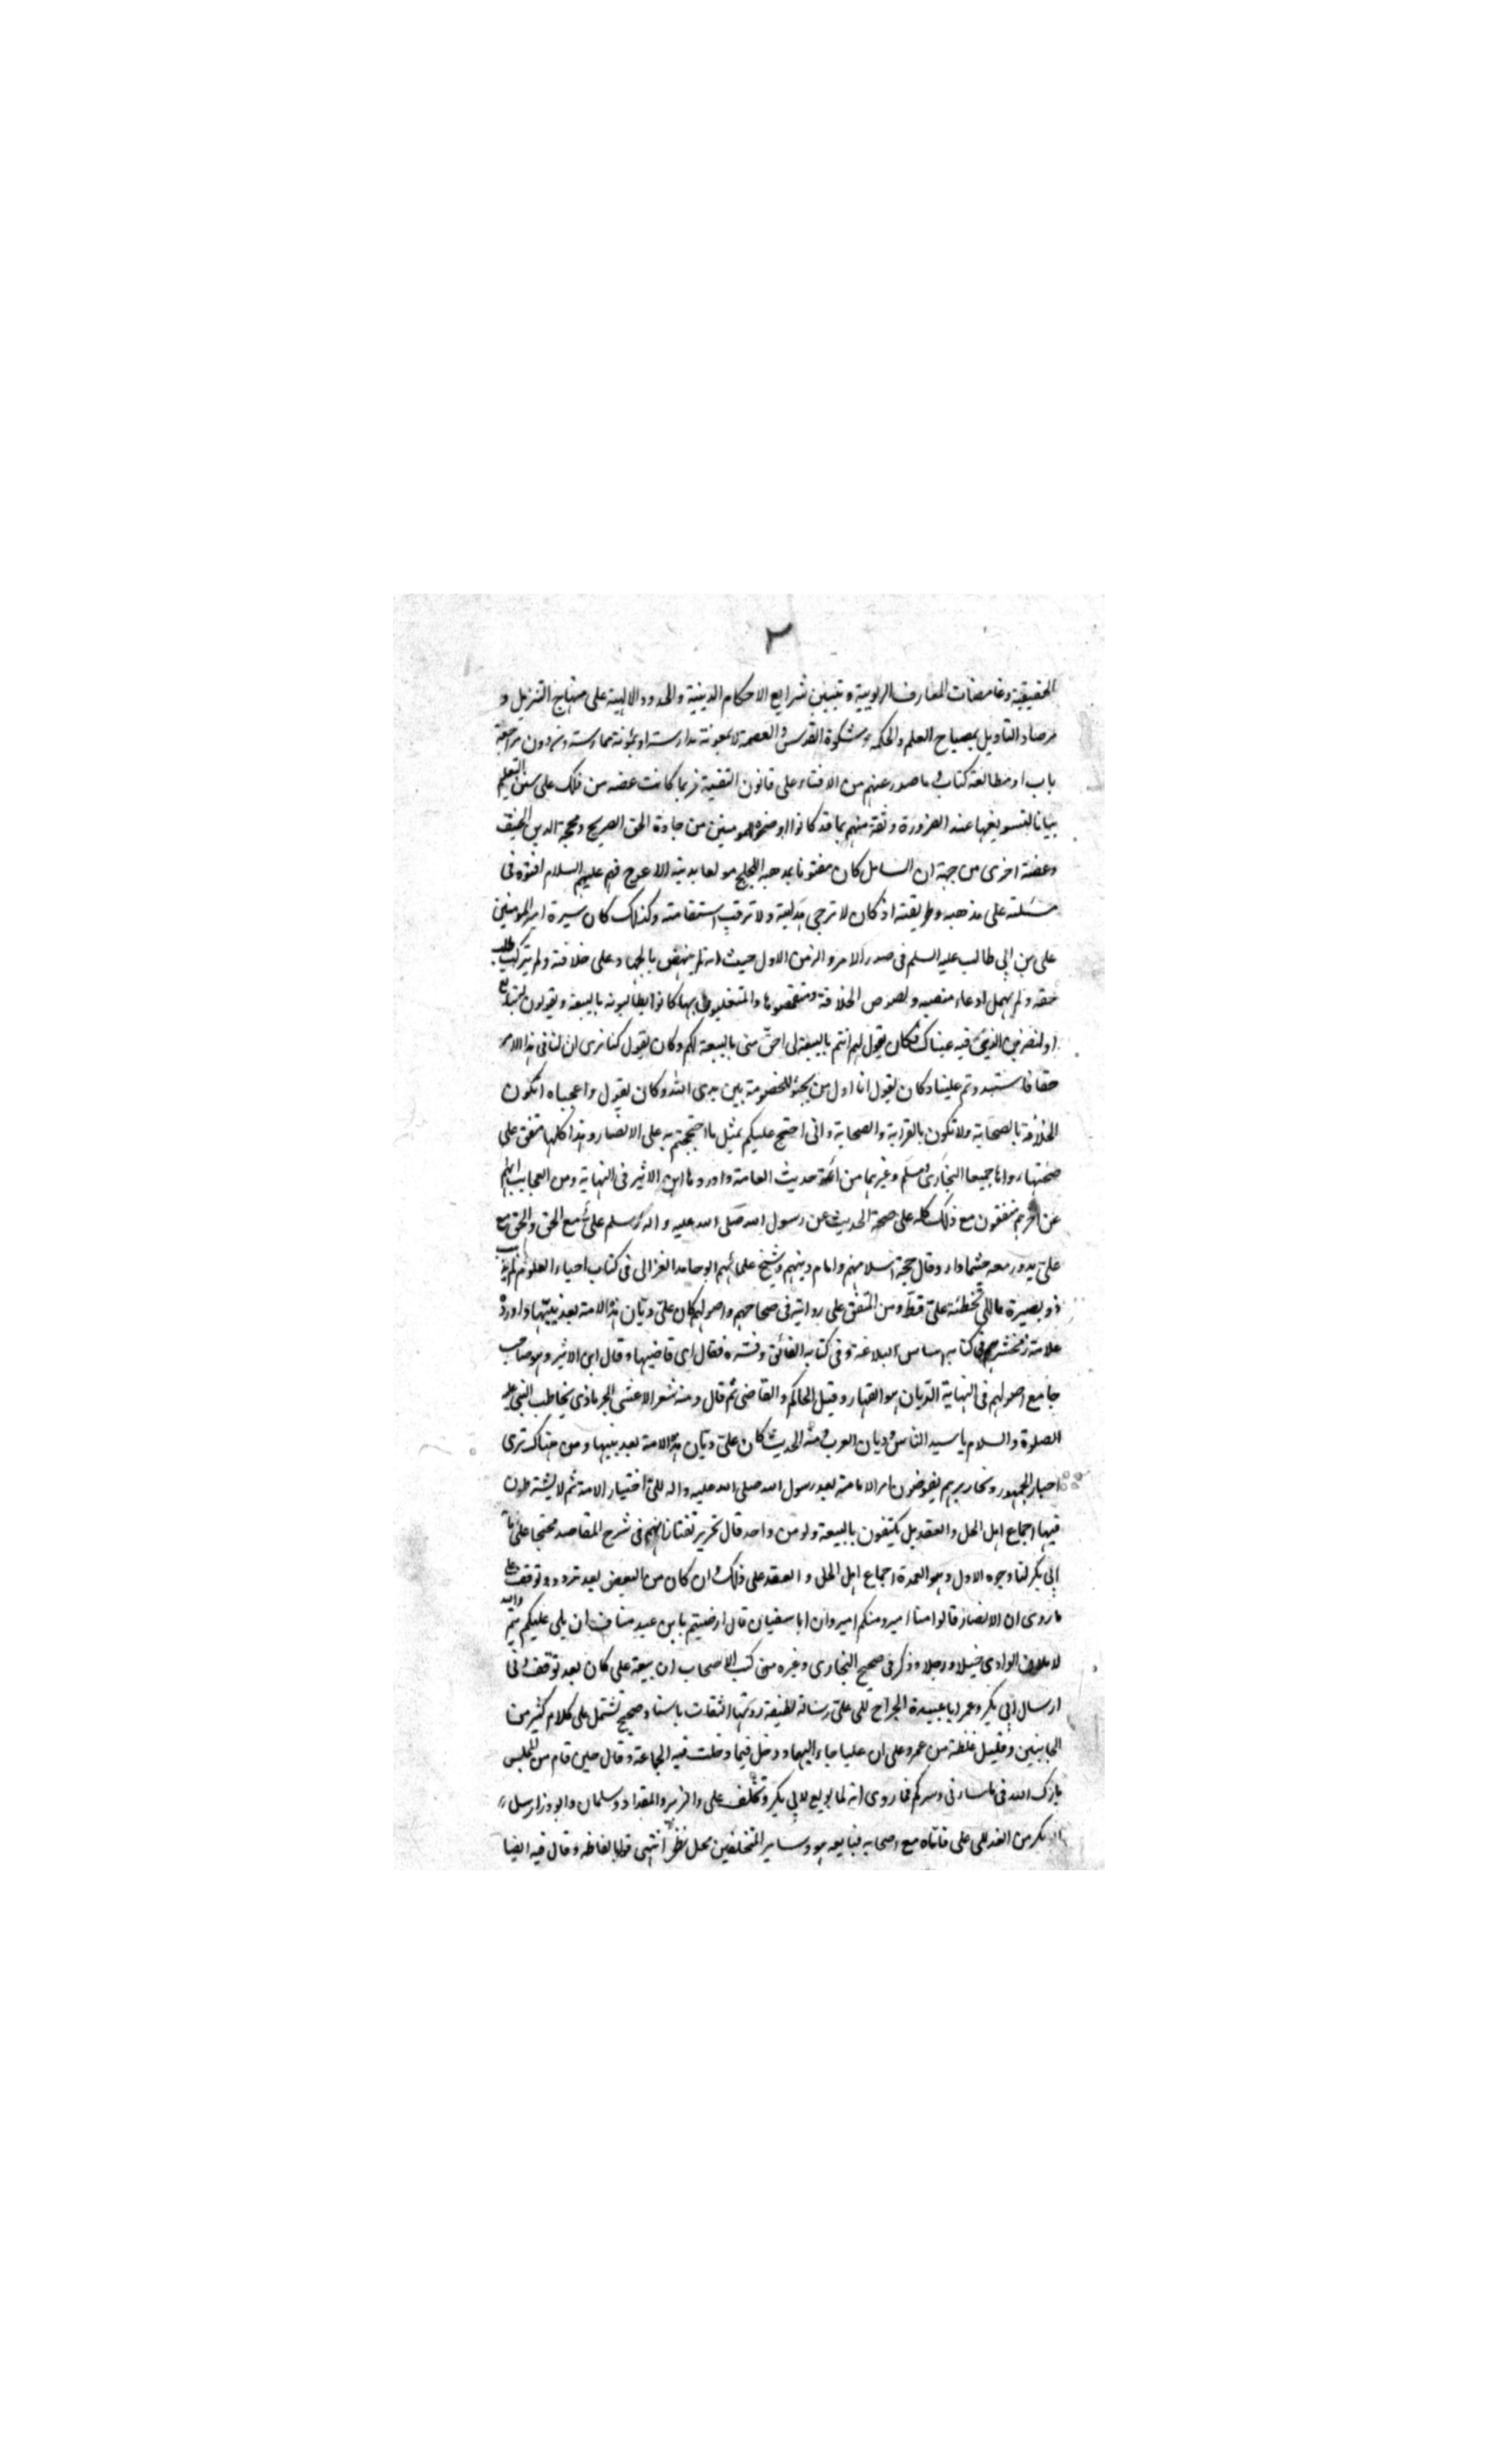 ٣
الحقيقية وغامضات المعارف الربوبية وتبيين شرايع الاحكام الدينية والحدود الالهية على منهاج التنزيل و
مرصاد التاويل بمصباح العلم والحكمة ومشكوة القدس والعصمة لا بمعونة مدارسة او بمؤنة ممارسة ومن دون مراجعة
باب او مطالعة كتاب وما صدر عنهم من الافتاء على قانون التقية فربما كانت عضه من ذلك على سنن التعليم
بيانا لتسويغها عند الضرورة وثقة منهم بما قد كانوا اوضحوه للمومنين من جادة الحق الصريح ومحجة الدين الحنيف
وعضة اخرى من جهة ان السايل كان مفتونا بمذهبه اللجلج مولعا بدينه الاعوج فهم عليهم السلام افتوه فى
مسئلته على مذهبه وطريقته اذ كان لا ترجى هدايته ولا ترقب استقامته وكذلك كان سيرة امير المومنين
على بن ابى طالب عليه السلم فى صدر الامر والزمن الاول حيث انه لم ينهض بالجهاد على خلافته ولم يترك طلب
حقه ولم يهمل ادعاء منصبه ولصوص الخلافة ومتقمصوها والمتغلبون بها كانوا يطالبونه بالبيعة ويقولون لتبايع
او لنضربن الذى فيه عيناك فكان يقول لهم انتم بالبيعة لى احق منى بالبيعة لكم وكان يقول كنا نرى ان لنا فى هذا الامر
حقا فاستبددتم علينا وكان يقول انا اول من يجثو للخصومة بين يدى الله وكان يقول واعجباه اتكون
الخلافة بالصحابة ولا تكون بالقرابة والصحابة وانى احتج عليكم بمثل ما احتججتم به على الانصار وهذا كلها متفق على
صحتها رواها جميعا البخارى ومسلم وغيرهما من ائمة حديث العامة واوردها ابن الاثير فى النهاية ومن العجايب انهم
عن اخرهم متفقون مع ذلك كله على صحة الحديث عن رسول الله صلى الله عليه واله وسلم على مع الحق والحق مع
على يدور معه حيثما دار وقال حجة اسلامهم وامام دينهم وشيخ علمائهم ابو حامد الغزالى فى كتاب احياء العلوم لم يذهب
ذو بصيرة ما الى تخطئة على قط ومن المتفق على روايته فى صحاحهم واصولهم كان على ديان هذه الامة بعد نبيها واورده
علامة زمخشرهم فى كتابه اساس البلاغة وفى كتابه الفائق وفسره فقال اى قاضيها وقال ابن الاثير وهو صاحب
جامع اصولهم فى النهاية الديان هو القهار وقيل الحاكم والقاضى ثم قال ومنه شعر الاعشى الحرمازى يخاطب النبى عليه
الصلوة والسلام يا سيد الناس وديان العرب ومنه الحديث كان على ديان هذه الامة بعد نبيها ومن هناك ترى
احبار الجمهور ونحاريرهم يفوضون امر الامامة بعد رسول الله صلى الله عليه واله الى اختيار الامة ثم لا يشترطون
فيها اجماع اهل الحل والعقد بل يكتفون بالبيعة ولو من واحد قال نحرير تفتازانهم فى شرح المقاصد محتجا على امامة
ابى بكر لنا وجوه الاول وهو العمدة اجماع اهل الحل والعقد على ذلك وان كان من البعض بعد تردد وتوقف على
ما روى ان الانصار قالوا منا امير ومنكم امير وان ابا سفيان قال ارضيتم يا بنى عبد مناف ان يلى عليكم تيم والله
لاملان الوادى خيلا ورجلا وذكر فى صحيح البخارى وغيره من كتب الاصحاب ان بيعة على كان بعد توقف وفى
ارسال ابى بكر وعمر ابا عبيدة الجراح الى على رسالة لطيفة روتها الثقات باسناد صحيح تشتمل على كلام كثير من
الجانبين وقليل غلظة من عمر وعلى ان عليا جاء اليهما ودخل فيما دخلت فيه الجماعة وقال حين قام من المجلس
بارك الله فى ما ساءنى وسركم فما روى انه لما بويع لابى بكر وتخلف على والزبير والمقداد وسلمان وابو ذر ارسل
ابو بكر من الغد الى على فاتاه مع اصحابه فبايعه هو وساير المتخلفين محل نظر انتهى قوله بالفاظه وقال فيه ايضا